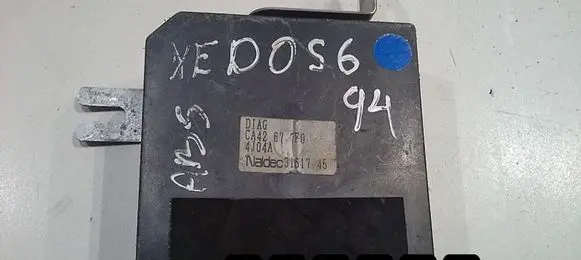 XEDOS6
94
ABS
DIAG
CA42 67 7F0
4J04A
Naldec 31617 45